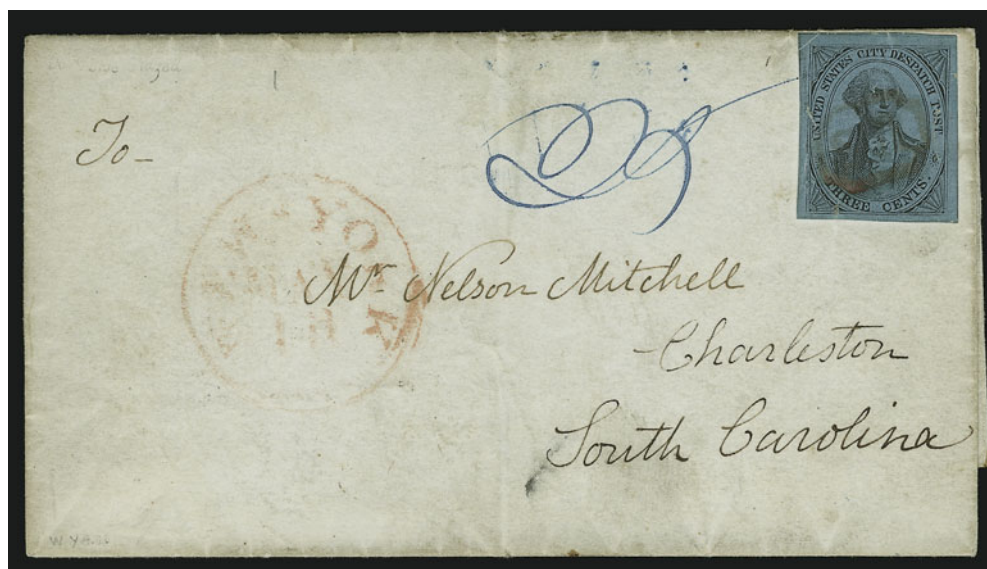 UNITED STATES CITY DESPATCH POST
THREE CENTS.
To-
NEW-YORK
Mr Nelson Mitchell
Charleston
South Carolina